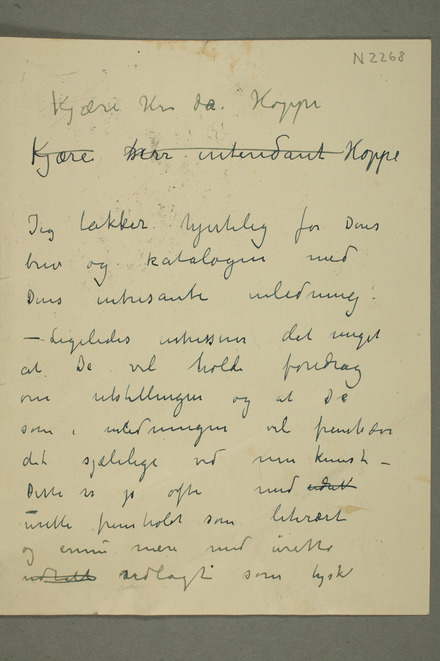 N 2268
Kjære Hr. Hoppe
Kjære herr intendant Hoppe
Jeg takker hjertelig for Deres
brev og katalogen med
Deres intresante inledning!
– Ligeledes intresserer det meget
at De vil holde foredrag
om utstillingen og at De
som i inledningen vil fremhæve
det sjælelige ved min kunst –
Dette er jo ofte med
urette fremholdt som literært
og ennu mere med urette
utlagt som tysk